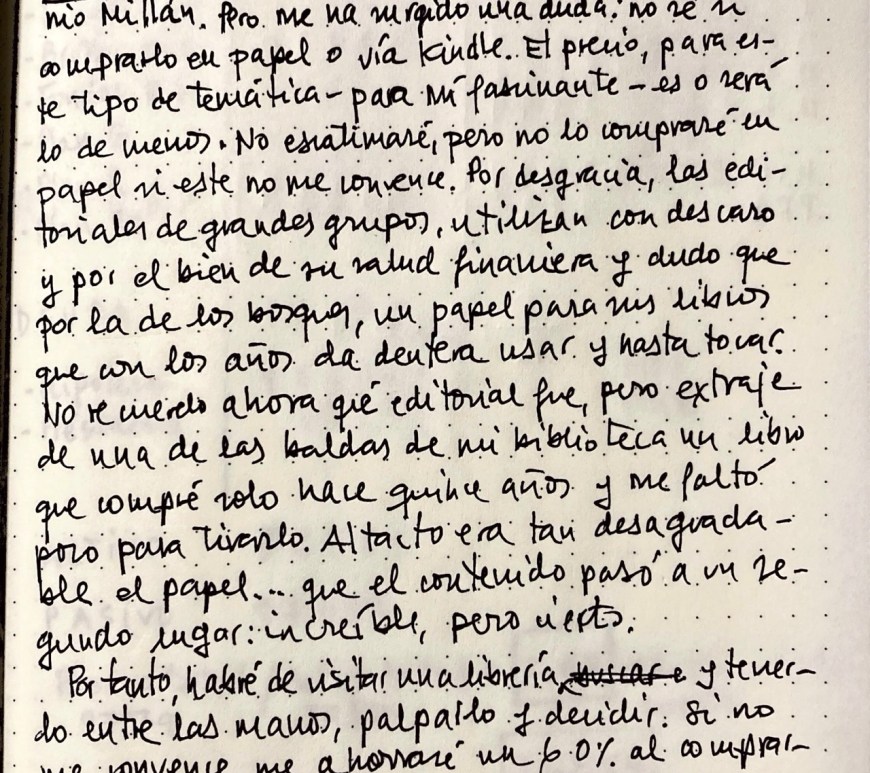 nio Millán. Pero me ha surgido una duda: no sé si
comprarlo en papel o vía Kindle. El precio, para es-
te tipo de temática – para mí fascinante – es o será
lo de menos. No escatimaré, pero no lo compraré en
papel si este no me convence. Por desgracia, las edi-
toriales de grandes grupos, utilizan con descaro
y por el bien de su salud financiera y dudo que
por la de los bosques, un papel para sus libros
que con los años da dentera usar y hasta tocar.
No recuerdo ahora qué editorial fue, pero extraje
de una de las baldas de mi biblioteca un libro
que compré solo hace quince años y me faltó
poco para tirarlo. Al tacto era tan desagrada-
ble el papel... que el contenido pasó a un se-
gundo lugar: increíble, pero cierto.
Por tanto, habré de visitar una librería, y tener-
lo entre las manos, palparlo y decidir. Si no
me convence me ahorraré un 60% al comprar-